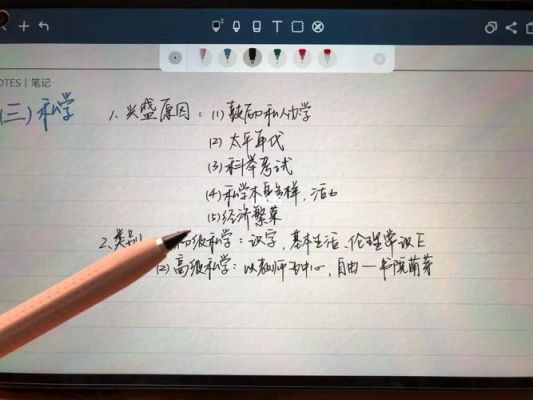 NOTES | 笔记
(三)私学
1.兴盛原因：(1)鼓励私人办学
(2)太平年代
(3)科举考试
(4)私学本身多样，活力
(5)经济繁荣
2.类别 初级私学：识字，基本生活、伦理常识
(2)高级私学：以教师为中心，自由—书院萌芽